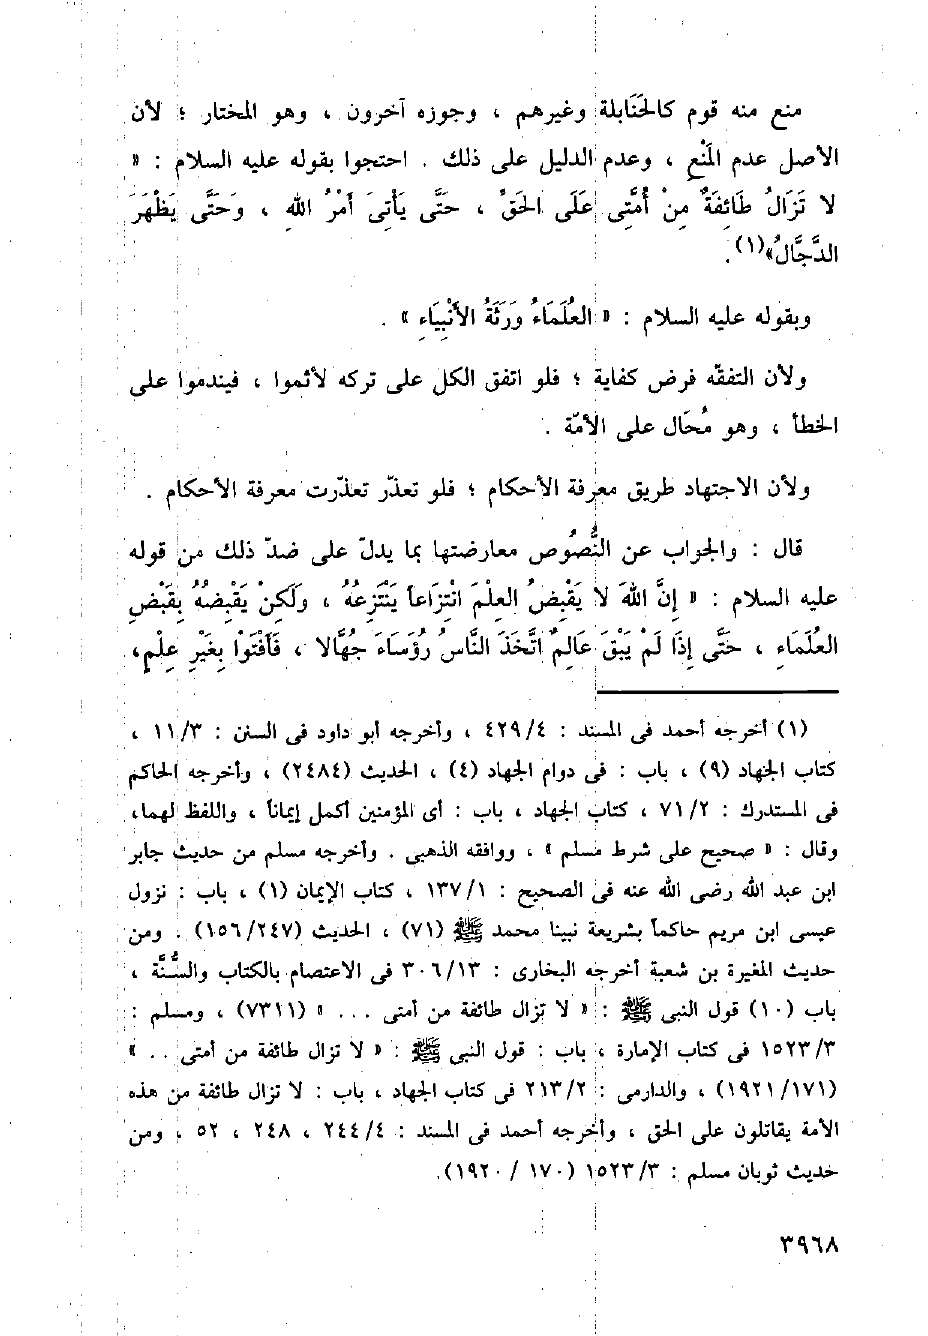 منع منه قوم كالحَنَابلة وغيرهم ، وجوزه آخرون ، وهو المختار ؛ لأن
الأصل عدم المَنْعِ ، وعدم الدليل على ذلك . احتجوا بقوله عليه السلام : «
لا تَزَالُ طَائِفَةٌ مِنْ أُمَّتِى عَلَى الحَقِّ ، حَتَّى يَأْتِىَ أَمْرُ اللهِ ، وَحَتَّى يَظْهَرَ
الدَّجَّالُ»(١).
وبقوله عليه السلام : « العُلَمَاءُ وَرَثَةُ الأَنْبِيَاءِ » .
ولأن التفقّه فرض كفاية ؛ فلو اتفق الكل على تركه لأثموا ، فيندموا على
الخطأ ، وهو مُحَال على الأمّة .
ولأن الاجتهاد طريق معرفة الأحكام ؛ فلو تعذّر تعذّرت معرفة الأحكام .
قال : والجواب عن النُّصُوص معارضتها بما يدلّ على ضدّ ذلك من قوله
عليه السلام : « إِنَّ اللهَ لا يَقْبِضُ العِلْمَ انْتِزَاعاً يَنْتَزِعُهُ ، وَلَكِنْ يَقْبِضُهُ بِقَبْضِ
العُلَمَاءِ ، حَتَّى إِذَا لَمْ يَبْقَ عَالِمٌ اتَّخَذَ النَّاسُ رُؤَسَاءَ جُهَّالا ، فَأَفْتَوْا بِغَيْرِ عِلْمٍ،
(١) أخرجه أحمد فى المسند : ٤٢٩/٤ ، وأخرجه أبو داود فى السنن : ١١/٣ ،
كتاب الجهاد (٩) ، باب : فى دوام الجهاد (٤) ، الحديث (٢٤٨٤) ، وأخرجه الحاكم
فى المستدرك : ٧١/٢ ، كتاب الجهاد ، باب : أى المؤمنين أكمل إيماناً ، واللفظ لهما،
وقال : « صحيح على شرط مسلم » ، ووافقه الذهبى . وأخرجه مسلم من حديث جابر
ابن عبد الله رضى الله عنه فى الصحيح : ١٣٧/١ ، كتاب الإيمان (١) ، باب : نزول
عيسى ابن مريم حاكماً بشريعة نبينا محمد ﷺ (٧١) ، الحديث (١٥٦/٢٤٧) . ومن
حديث المغيرة بن شعبة أخرجه البخارى : ٣٠٦/١٣ فى الاعتصام بالكتاب والسُّنَّة ،
باب (١٠) قول النبى ﷺ : « لا تزال طائفة من أمتى ... » (٧٣١١) ، ومسلم :
١٥٢٣/٣ فى كتاب الإمارة ، باب : قول النبى ﷺ : « لا تزال طائفة من أمتى .. »
(١٩٢١/١٧١) ، والدارمى : ٢١٣/٢ فى كتاب الجهاد ، باب : لا تزال طائفة من هذه
الأمة يقاتلون على الحق ، وأخرجه أحمد فى المسند : ٢٤٤/٤ ، ٢٤٨ ، ٥٢ ، ومن
حديث ثوبان مسلم : ١٥٢٣/٣ (١٧٠ / ١٩٢٠).
٣٩٦٨